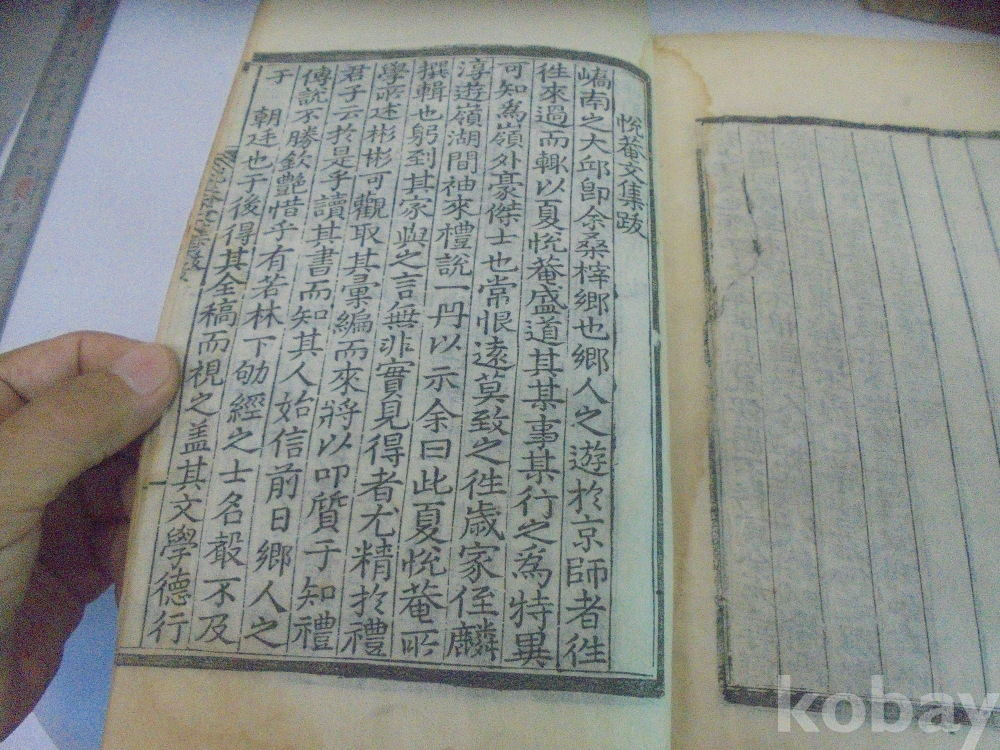 悅菴文集跋
嶠南之大邱卽余桑梓鄉也鄉人之遊於京師者徃
徃來過而輒以夏悅菴盛道其某事某行之爲特異
可知爲嶺外豪傑士也常恨遠莫致之徃歲家侄麟
淳遊嶺湖間袖來禮說一丹以示余曰此夏悅菴所
撰輯也躬到其家與之言無非實見得者尤精於禮
學所述彬彬可觀取其彙編而來將以叩質于知禮
君子云於是乎讀其書而知其人始信前日鄉人之
傳說不勝欽艶惜乎有若林下劬經之士名聲不及
于朝廷也于後得其全稿而視之盖其文學德行
kobay